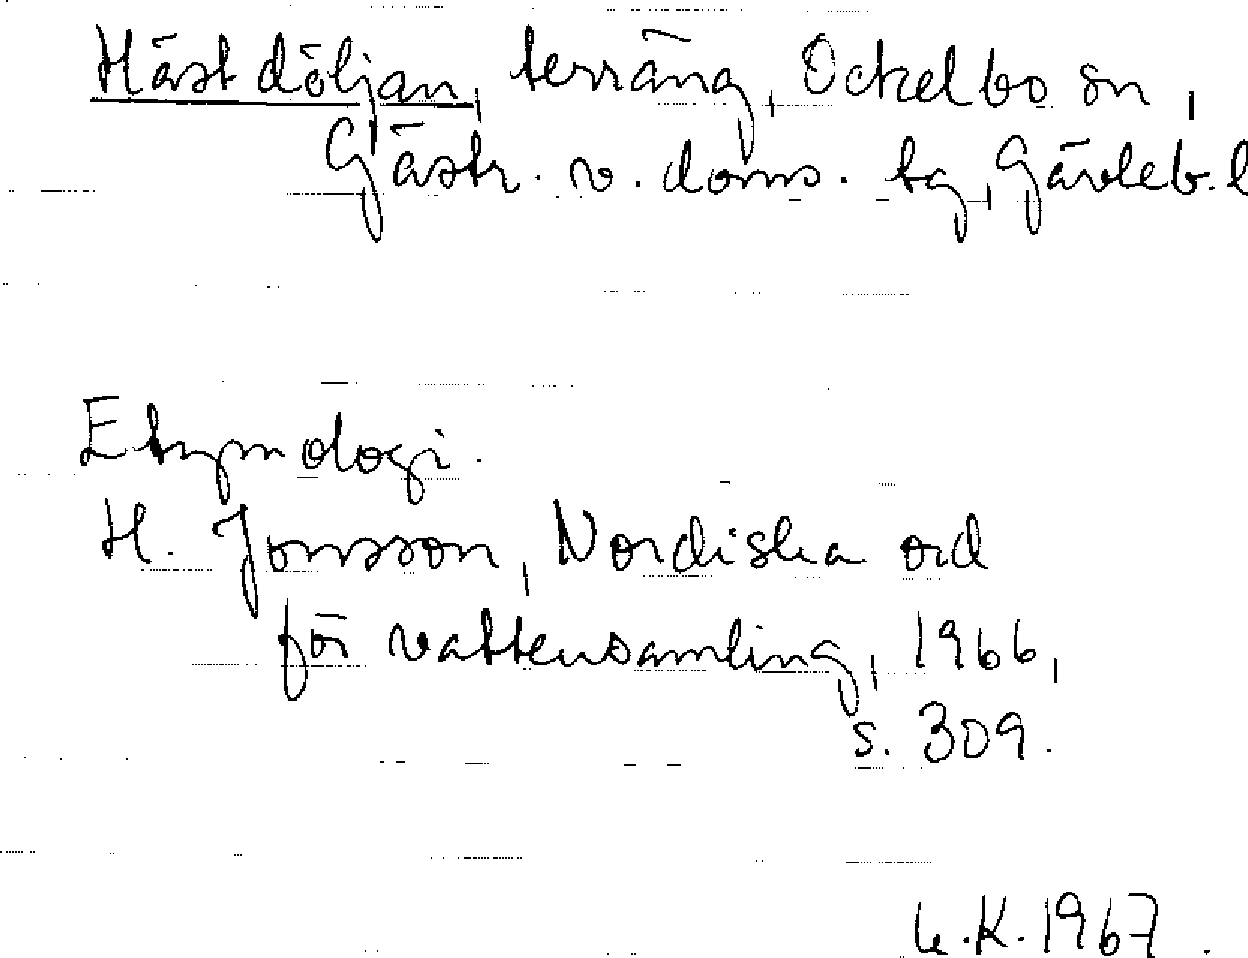 Hästdöljan, terräng, Ockelbo sn,
Gästr. v. doms. tg, Gävleb. l
Etymologi.
H. Jonsson, Nordiska ord
för vattensamling, 1966,
s. 309.
K. 1967.